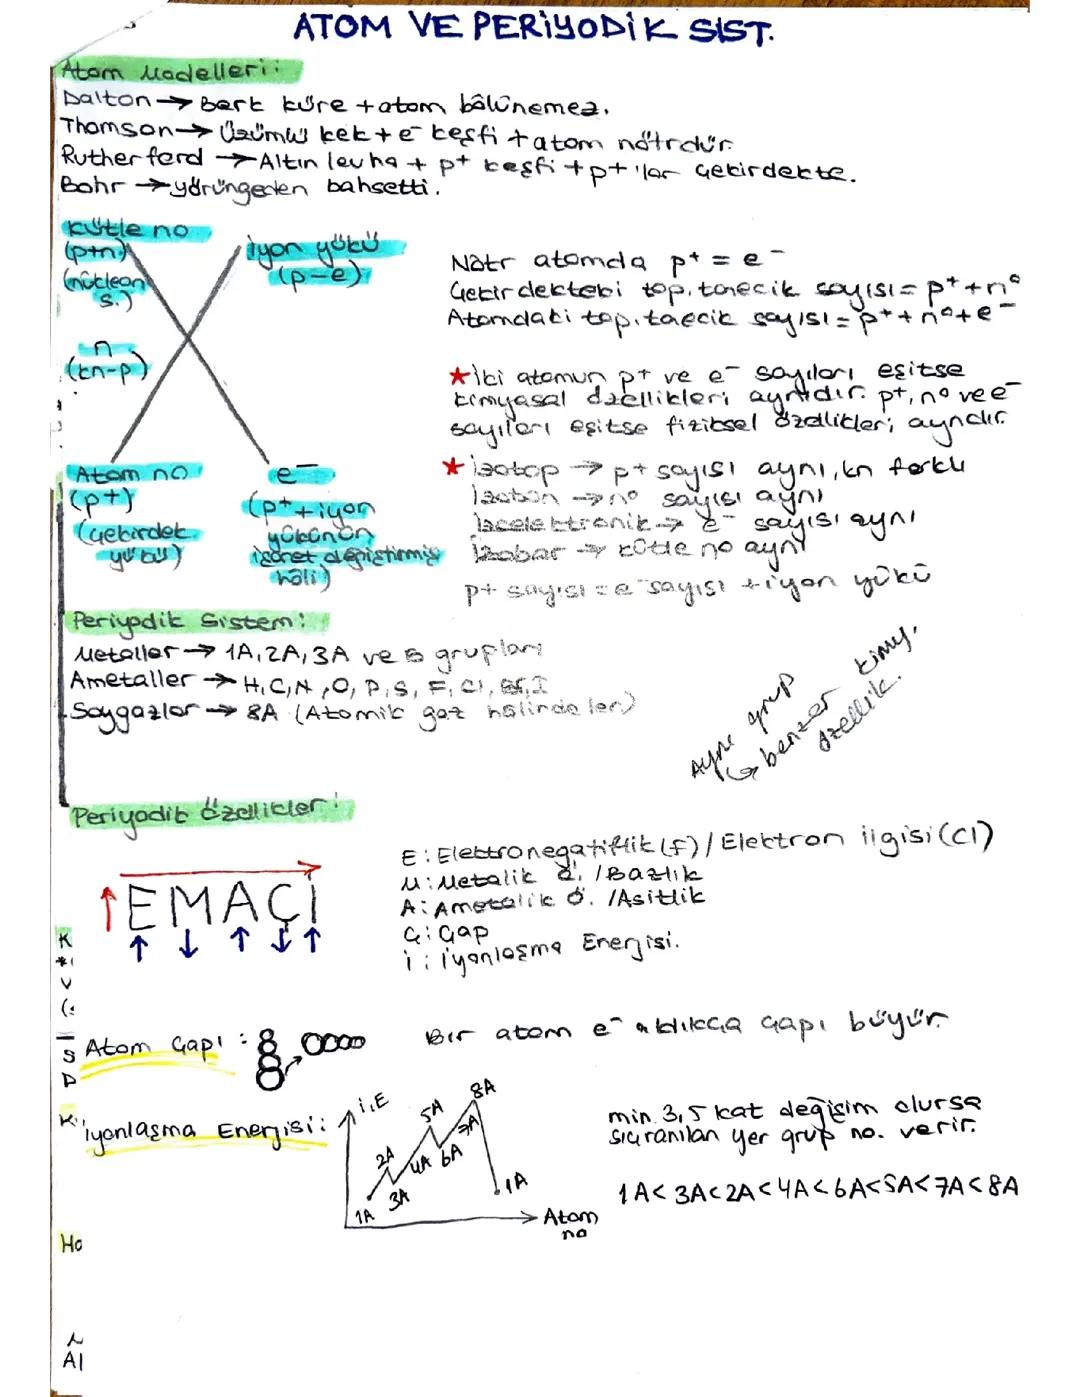 ATOM VE PERİYODİK SİST.
Atom Modelleri:
Dalton → Berk küre + atom bölünemez.
Thomson → Üzümlü kek + e⁻ keşfi + atom nötrdür.
Rutherford → Altın levha + p⁺ keşfi + p⁺'lar çekirdekte.
Bohr → yörüngeden bahsetti.
kütle no
(p+n)
(nükleon
s.)
iyon yükü
(p-e)
n
(kn-p)
Atom no
(p+)
(çekirdek
yükü)
e⁻
(p⁺ + iyon
yükünün
işaret değiştirmiş
hâli)
Nötr atomda p⁺ = e⁻
Çekirdekteki top. tanecik sayısı = p⁺ + n⁰
Atomdaki top. taecik sayısı = p⁺ + n⁰ + e⁻
★ İki atomun p⁺ ve e⁻ sayıları eşitse
kimyasal özellikleri aynıdır. p⁺, n⁰ ve e⁻
sayıları eşitse fiziksel özellikleri aynıdır.
★ izotop → p+ sayısı aynı, kn farklı
İzoton → n⁰ sayısı aynı
İzoelektronik → e⁻ sayısı aynı
İzobar → kütle no aynı
p+ sayısı = e⁻ sayısı + iyon yükü
Periyodik Sistem:
Metaller → 1A, 2A, 3A ve B grupları
Ametaller → H, C, N, O, P, S, F, Cl, Br, I
Soygazlar → 8A (Atomik gaz hâlindeler)
Aynı grup
↳ benzer kimy.
özellik.
Periyodik Özellikler:
↑ EMAÇİ
↑ ↓ ↑ ↓ ↑
E: Elektronegatiflik (F) / Elektron ilgisi (Cl)
M: Metalik ö. / Bazlık
A: Ametalik ö. / Asitlik
Ç: Çap
İ: İyonlaşma Enerjisi.
Atom Çapı:
Bir atom e⁻ aldıkça çapı büyür.
İyonlaşma Enerjisi:
İ.E
1A
2A
3A
4A
5A
6A
7A
8A
1A
Atom
no
min. 3,5 kat değişim olursa
sıçranılan yer grup no. verir.
1A < 3A < 2A < 4A < 6A < 5A < 7A < 8A
K
V
S
D
K
Ho
Al